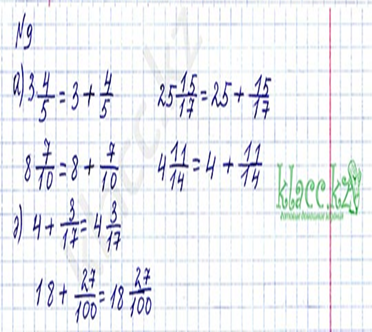 №9
а) 3 4/5 = 3 + 4/5    25 15/17 = 25 + 15/17
8 7/10 = 8 + 7/10    4 11/14 = 4 + 11/14
klacc.kz
д) 4 + 3/17 = 4 3/17
18 + 27/100 = 18 27/100